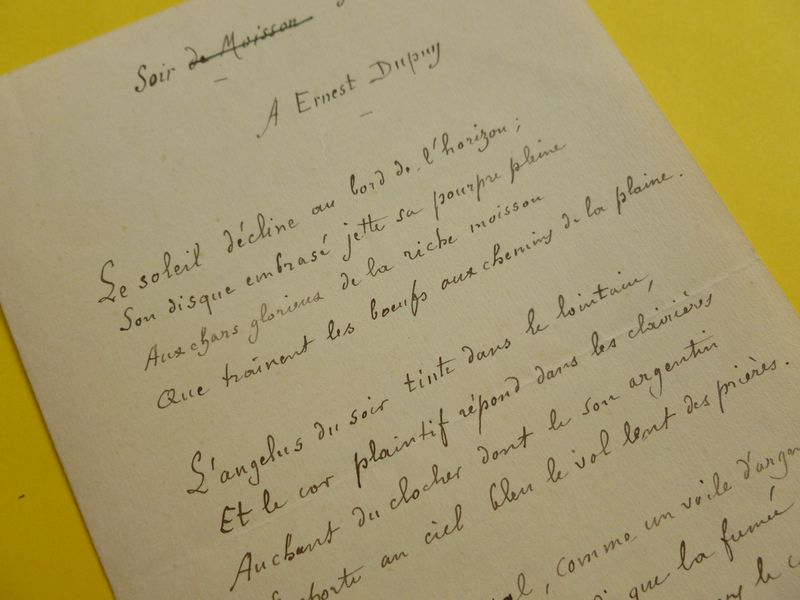 Soir de Moisson
A Ernest Dupuy
Le soleil décline au bord de l'horizon ;
Son disque embrasé jette sa pourpre pleine
Aux chars glorieux de la riche moisson
Que traînent les bœufs aux chemins de la plaine.
L'angelus du soir tinte dans le lointain,
Et le cor plaintif répond dans les clairières
Au chant du clocher dont le son argentin
au ciel bleu le vol lent des prières.
, comme un voile d'argen
que la fumée
le c